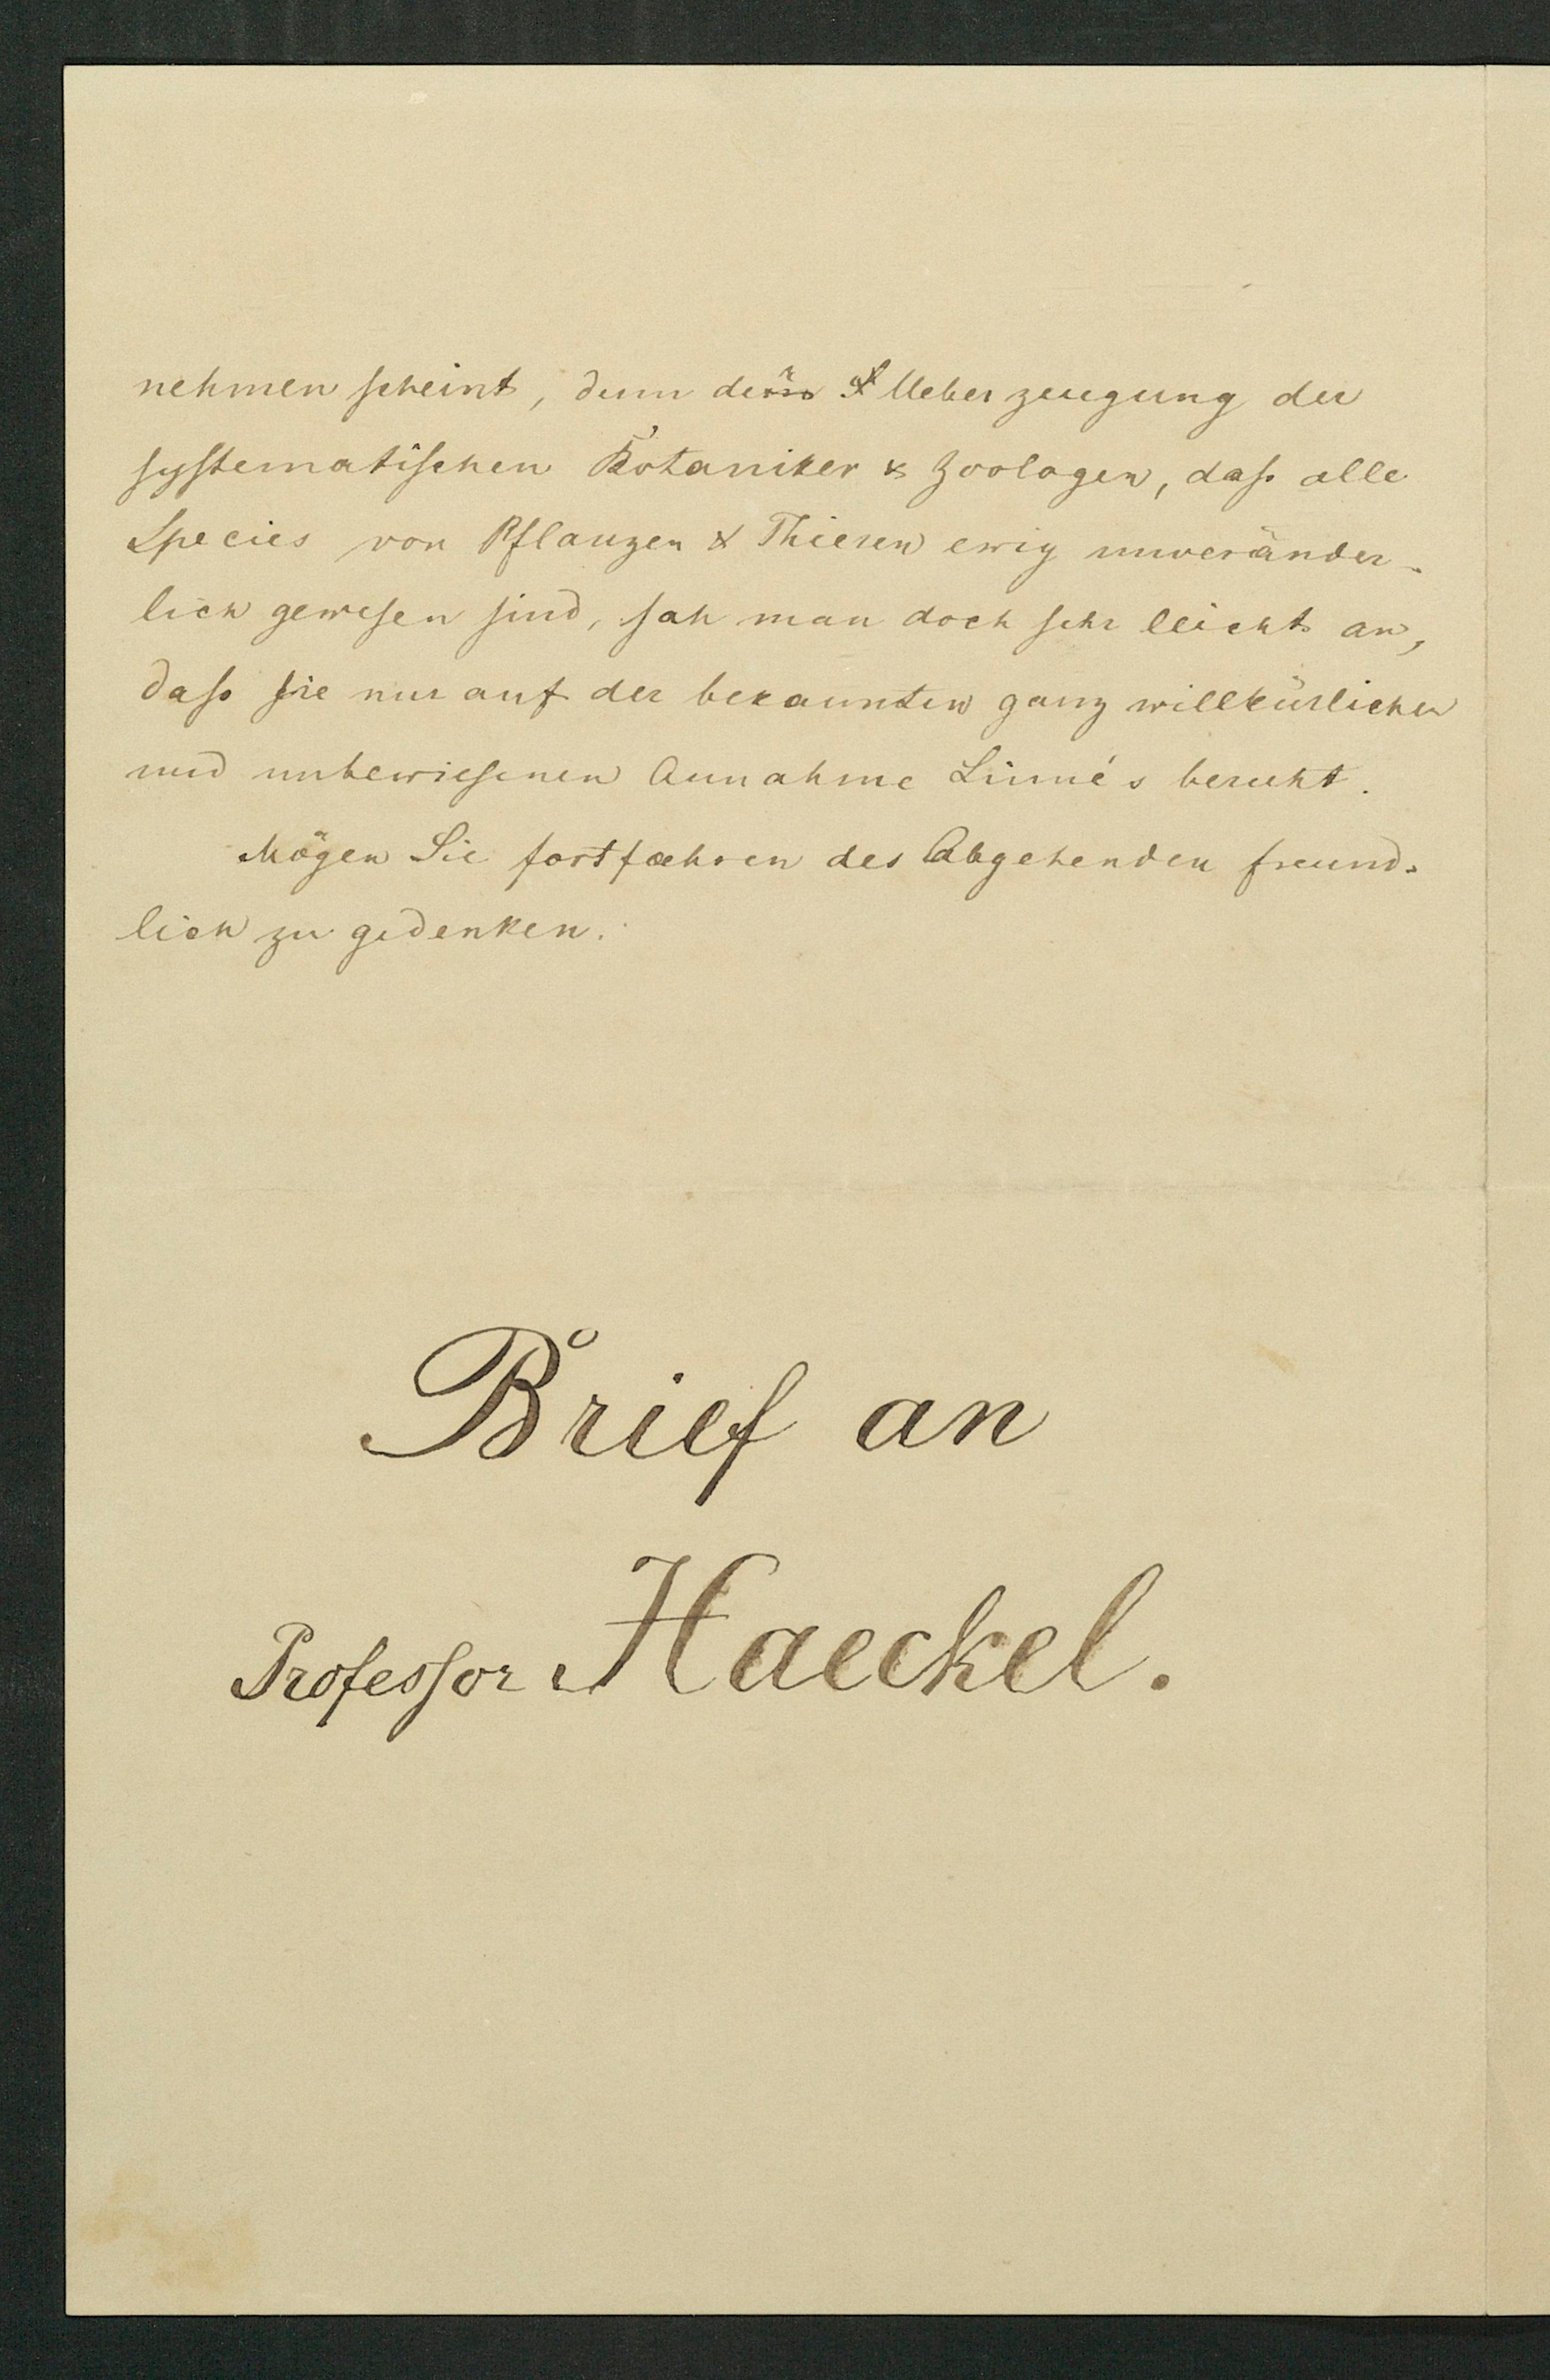 nehmen scheint, denn der Ueberzeugung der
systematischen Botaniker & Zoologen, daß alle
Species von Pflanzen & Thieren ewig unveränder-
lich gewesen sind, sah man doch sehr leicht an,
daß sie nur auf der bekannten ganz willkürlichen
und unbewiesenen Annahme Linné's beruht.
Mögen Sie fortfaehren des Abgehenden freund-
lich zu gedenken.
Brief an
Professor Haeckel.